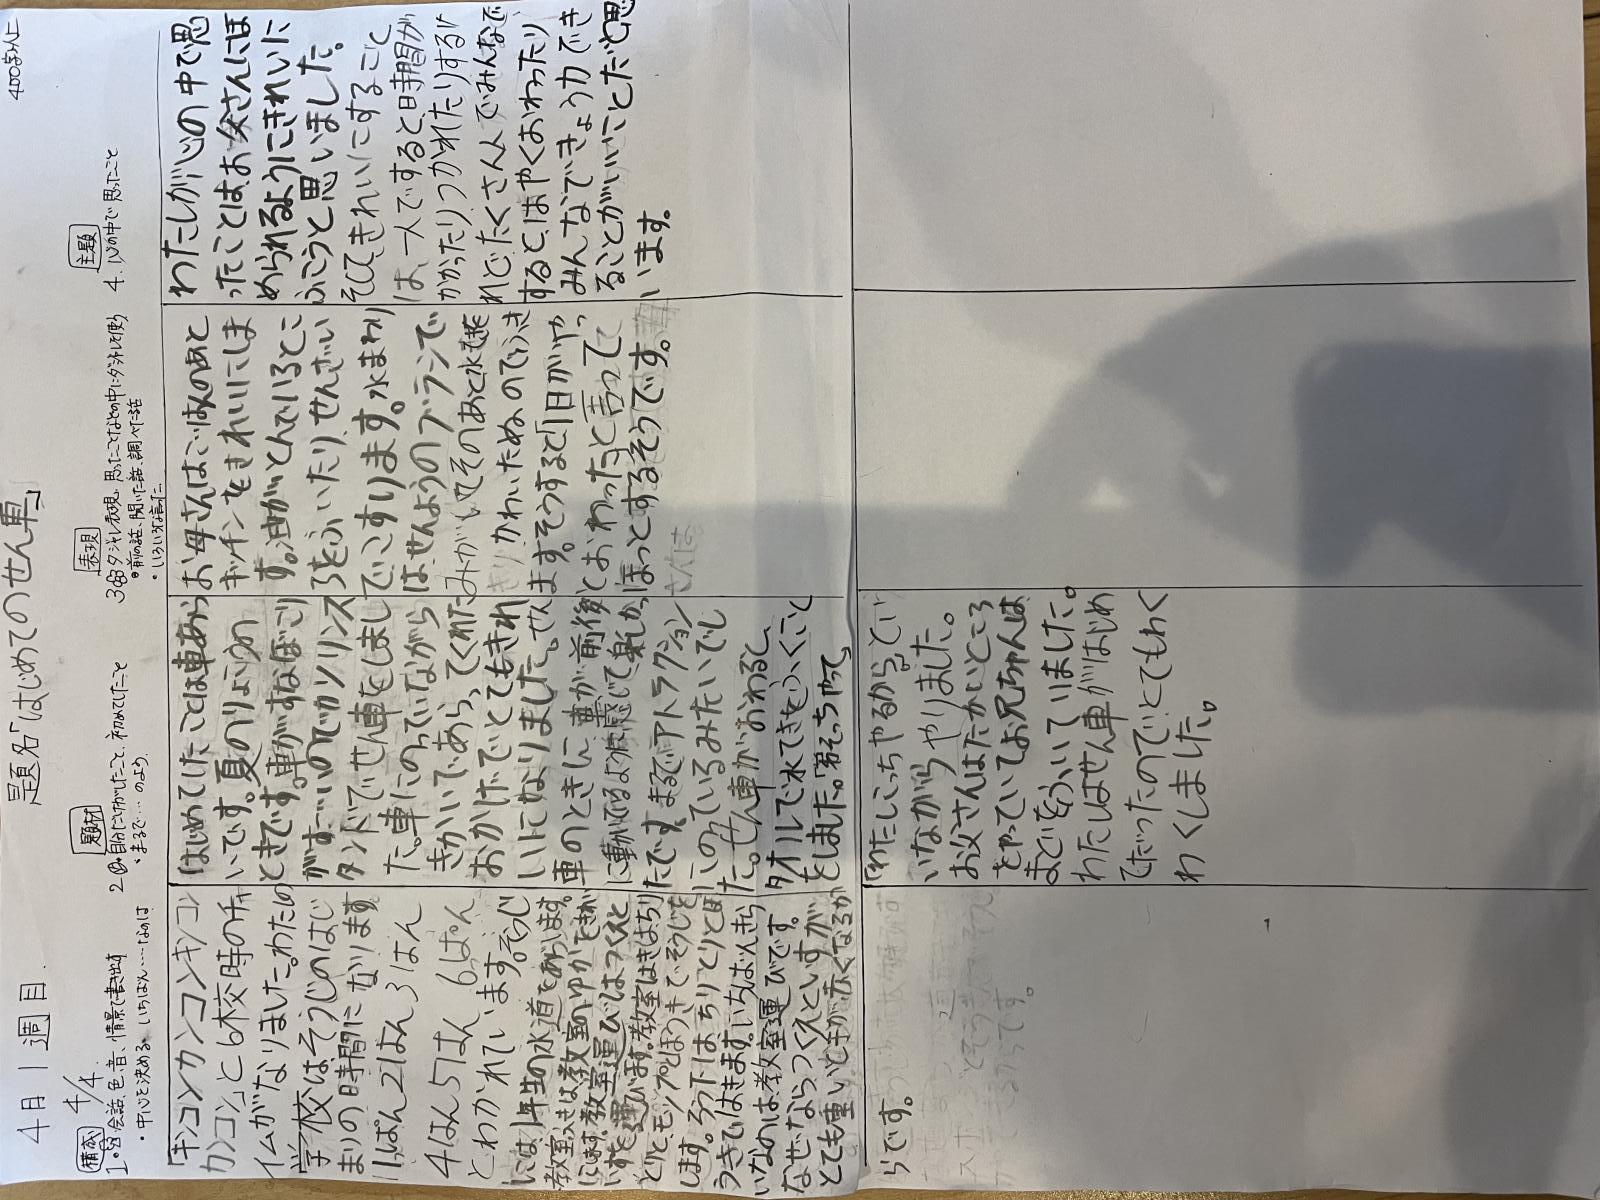 4月1週目
題名「はじめてのせん車」
400字以上
4/4
構成
1. 会話、色、音、情景で書き出す
・中心を決める。いちばん……なのは
題材
2 目だたせたいこと、初めてしたこと
・まるで…のよう
表現
・前の話、聞いた話、調べた話
主題
4. 心の中で思ったこと
「キンコンカンコンキンコン
カンコン」と6校時のチャ
イムがなりました。わたしの
学校はそうじのはじ
まりの時間になります
1ぱん2はん3はん
4はん5はん6ぱん
とわかれています。ぞうじ
には1年生の水道をあらいます。
教室ふきは教室のゆかをきれい
にします。教室運びはつくえと
いすを運びます。教室はきはちり
とりとモップとほうきでそうじを
します。ろう下はちりとりとほ
うきではきます。いちばんきら
いなのは教室運びです。
なぜならつくえといすが
とても重いと手が赤くなるか
らです。
はじめてしたことは車あら
いです。夏のりょうりの
ときです。車がすなぼこり
がすごいのでガソリンス
タンドでせん車をしまし
た。車にのっていながら
きかいであらってくれた
おかげでとてもきれ
いになりました。せん
車のときに車が前後
に動いてるように感じて楽しかっ
たです。まるでアトラクション
にのっているみたいでし
た。せん車がおわると、
タオルで水てきをふくこと
をしました。「弟そっちやって、
「わたしこっちやるから」とい
いながらやりました。
お父さんはたかいところ
をやっていてお兄ちゃんは
まどをふいていました。
わたしはせん車がはじめ
てだったのでとてもわく
わくしました。
お母さんはごはんのあと
キッチンをきれいにしま
す。油がとんでいるとこ
ろをふいたりせんざい
でこすります。水まわり
はせんようのブラシで
みがいてそのあと水を
きりかわいたぬのでふき
ます。そうすると「1日がや
っとおわった」と言って
ほっとするそうです。
わたしが心の中で思
ったことは、お父さんにほ
められるようにきれいに
ふこうと思いました。
そしてきれいにすること
は、一人ですると、時間が
かかったりつかれたりするけ
れど、たくさん人でみんなで
するとはやくおわったり
みんなできょう力でき
ることがいいことだと思
います。